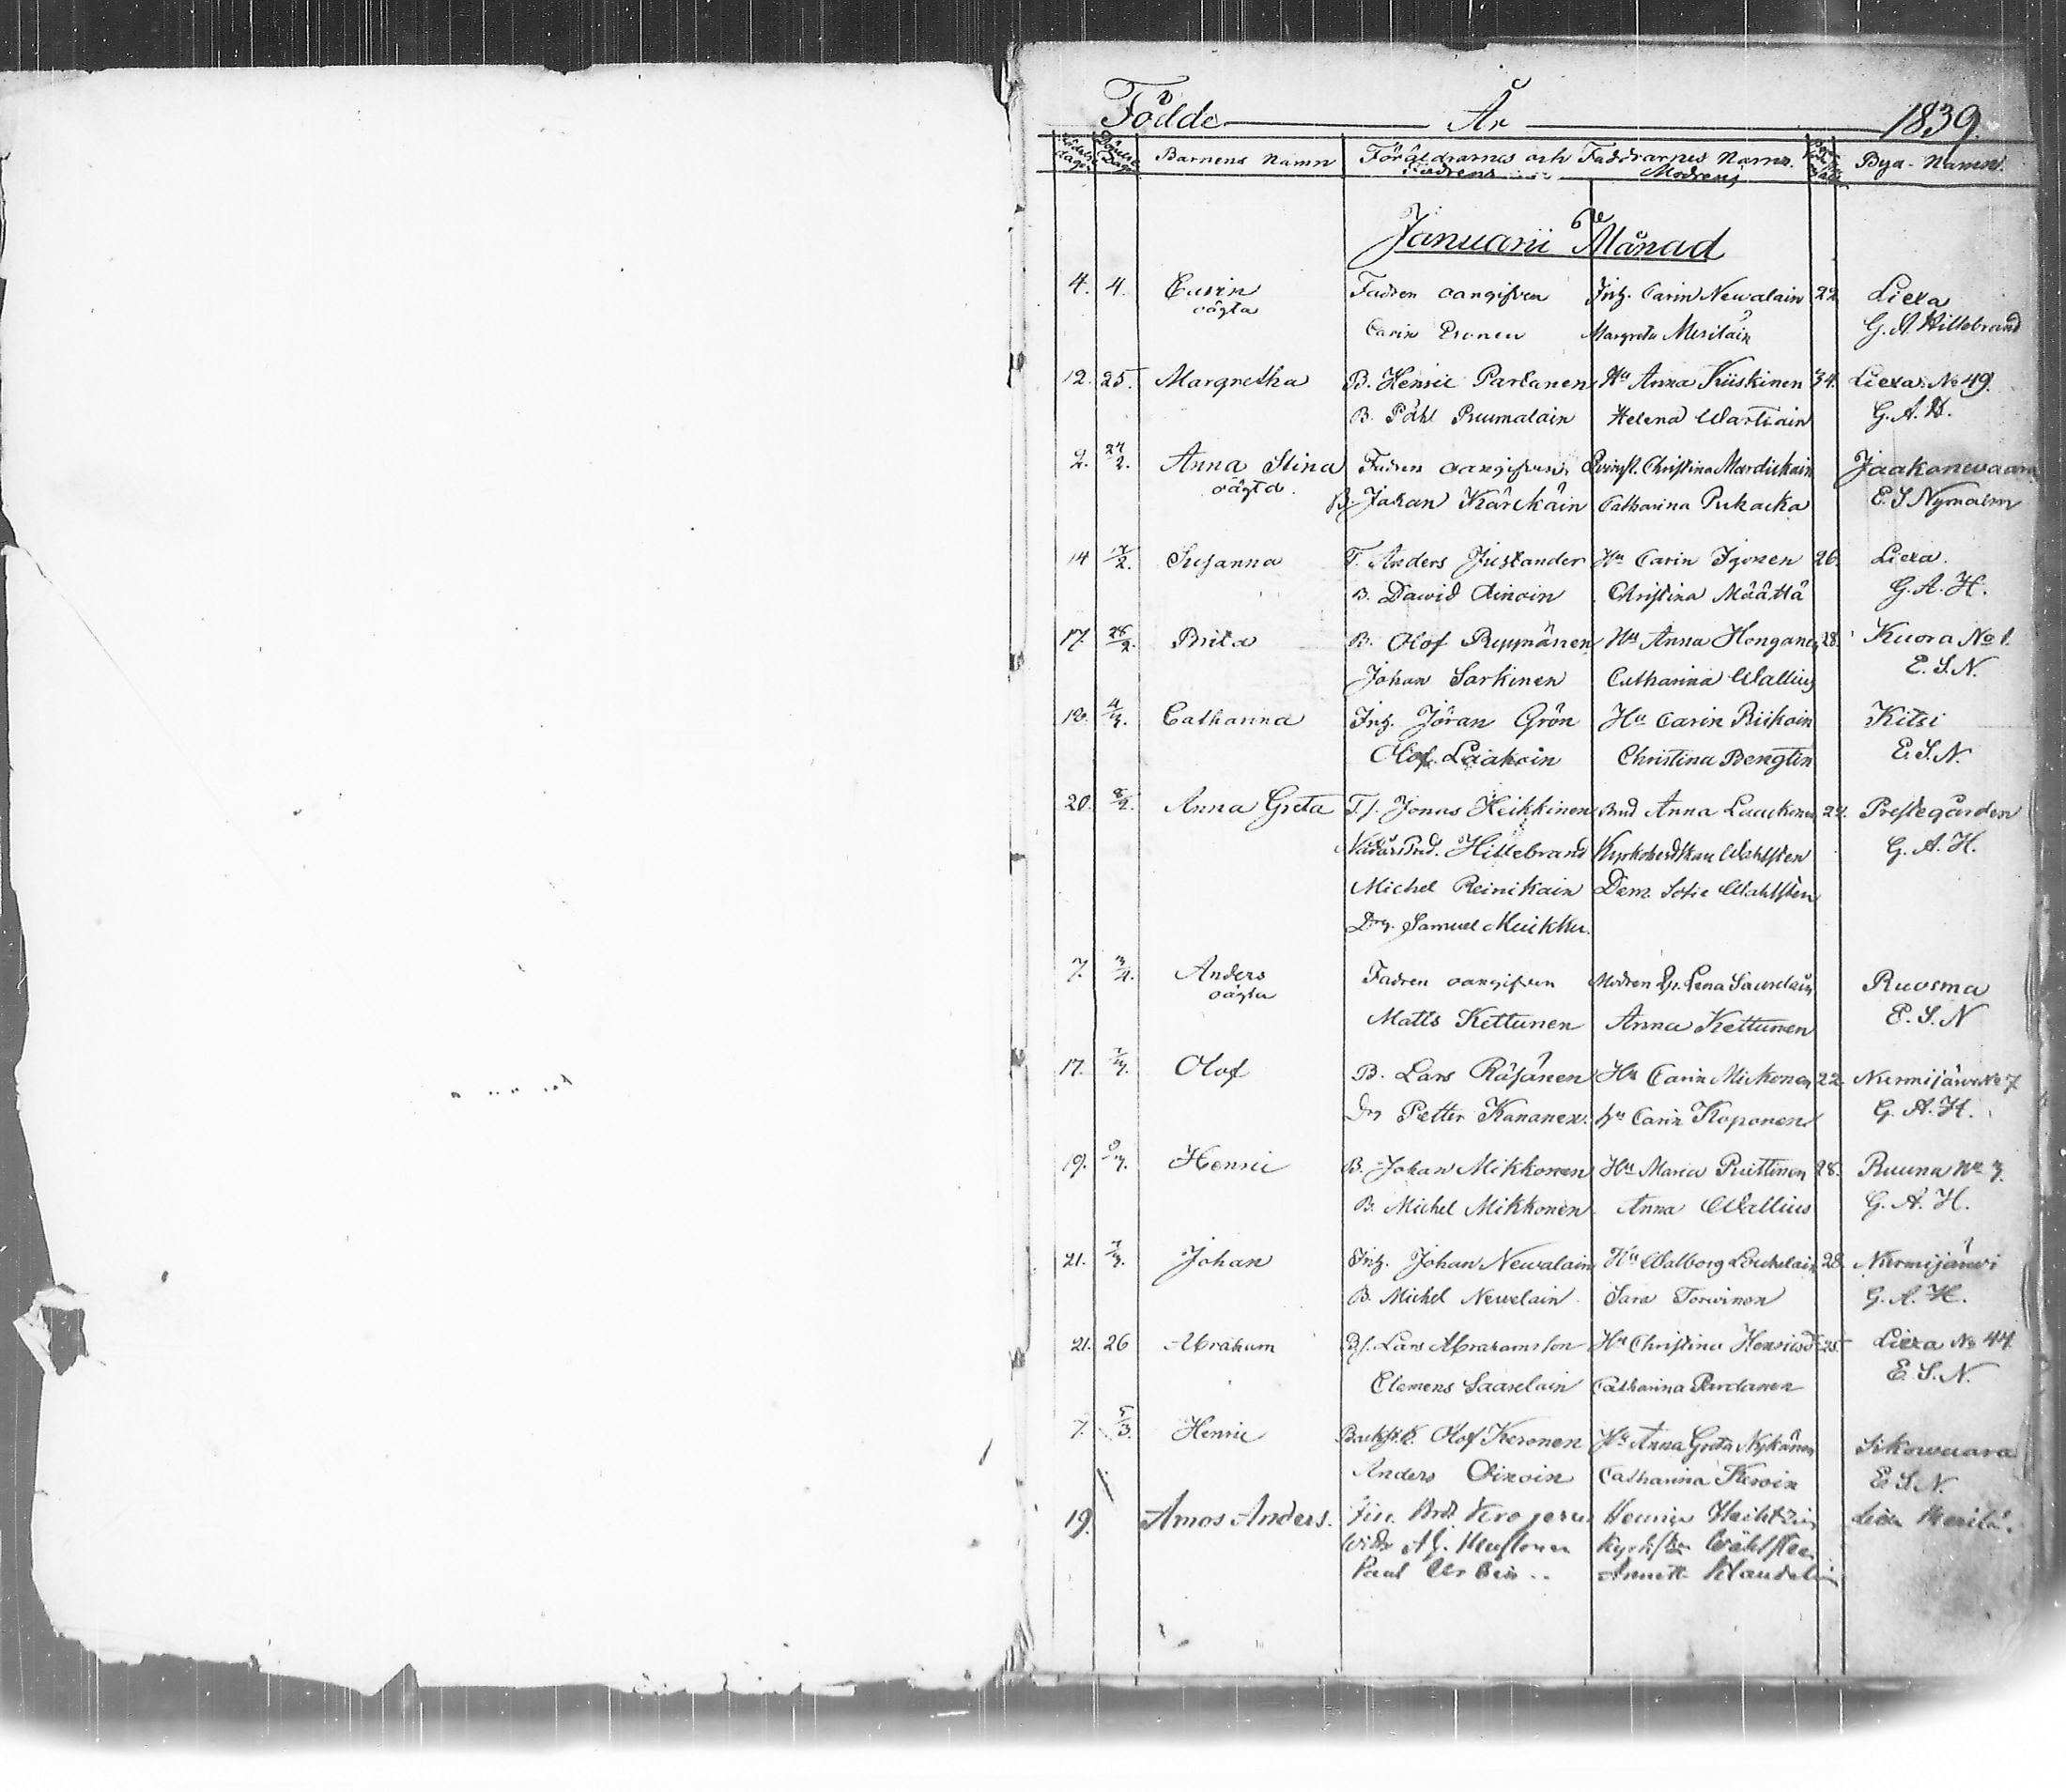 Födde År 1839.
Födelse dagen Döpelse Dagen Barnens Namn Föräldrarnes och Faddrarnes Namn. Bya-Namn.
Fadrens Modrens
Januarii Månad
4. 4. Carin Fadren oangifven Inh. Carin Newalain 22 Liexa
oägta
Carin Margreta Meriläin G. A. Hillebrand
12. 25. Margretha B. Henric Partanen Hu Anna Kiiskinen 34. Liexa No 49.
B. Påhl Ruumalain Helena Wartiain G. A. H.
2. 24/2. Anna Stina Fadren oangifven Christina Mardickain Jaakonewaara
oägta.
B. Johan Kärckäin Catharina Pukacka E. S Nymalm
14 17/2. Susanna T. Anders Justander Hu Carin Igonen 26. Liexa.
B. Dawid Oinoin Christina Määttä G. A. H.
17. 28/2. Brita B. Olof Ryynänen Hu Anna Honganen 28. Kuora No 1.
Johan Sarkinen Catharina Wallius E. S. N.
4/3. Catharina Inh. Jöran Grön Hu Carin Riikoin Kitsi
Olof Laakoin Christina Bengtin E. S. N.
20. 8/2. Anna Greta T. f. Jonas Heikkinen Anna Lauckanen 24. Prestegården
Hillebrand Kyrkoherdskan Wahlsten G. A. H.
Michel Reinikain Dem. Sofie Wahlsten
Drg. Samuel Muikku.
7. 3/4. Anders Fadren oangifven Modren Lena Ruosma
oägta
Matts Kettunen Anna Kettunen E. S. N
17. 7/3. Olof B. Lars Räsänen Hu Carin Mickonen 22. Nurmijärwi No 7
Drg Petter Kananen. Hu Carin Koponen G. A. H.
19. 9/3. Henric B. Johan Mikkonen Hu Maria Puittinen 28. Ruuna No 3.
B. Michel Mikkonen Anna Wallius G. A. H.
21. 7/3. Johan Inh. Johan Newalain Hu Walborg 28. Nurmijärwi
B. Michel Newelain Sara Torwinen G. A. H.
21. 26 Abraham Bf. Lars Abrahamsson Hu Christina Henricsd 25. Liexa No 44.
Clemens Saarelain Catharina Pardanen E. S. N.
7. 5/3. Henric Olof Keronen Hu Anna Greta Nykänen Sikowaara
Anders Oinoin Catharina Keroin E. S. N.
19. Amos Anders.
Paul